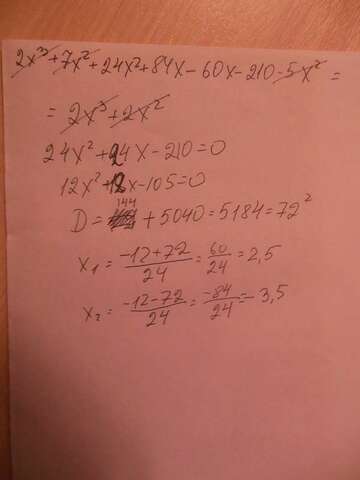 2x³+7x²+24x²+84x-60x-210-5x²=
=2x³+2x²
24x²+24x-210=0
12x²+12x-105=0
D=144+5040=5184=72²
x₁=(-12+72)/24=60/24=2,5
x₂=(-12-72)/24=-84/24=-3,5